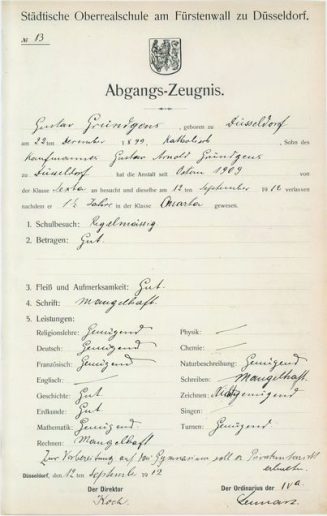 Städtische Oberrealschule am Fürstenwall zu Düsseldorf.
№ 13
Abgangs-Zeugnis.
Gustav Gründgens, geboren zu Düsseldorf
am 22ten December 1899, Katholisch, Sohn des
Kaufmannes Gustav Arnold Gründgens
zu Düsseldorf hat die Anstalt seit Ostern 1909 von
der Klasse Sexta an besucht und dieselbe am 12 ten September 1912 verlassen
nachdem er 1½ Jahre in der Klasse Quarta gewesen.
1. Schulbesuch: Regelmässig
2. Betragen: Gut.
3. Fleiß und Aufmerksamkeit: Gut
4. Schrift: Mangelhaft.
5. Leistungen:
Religionslehre: Genügend Physik: —
Deutsch: Genügend Chemie: —
Französisch: Genügend Naturbeschreibung: Genügend
Englisch: — Schreiben: Mangelhaft
Geschichte: Gut Zeichnen: genügend
Erdkunde: Gut Singen: —
Mathematik: Genügend Turnen: Genügend
Rechnen: Mangelhaft
Zur Vorbereitung auf Gymnasium soll er Privatunterricht
erhalten.
Düsseldorf, den 12 ten September 1912
Der Direktor Der Ordinarius der IVa.
Koch.